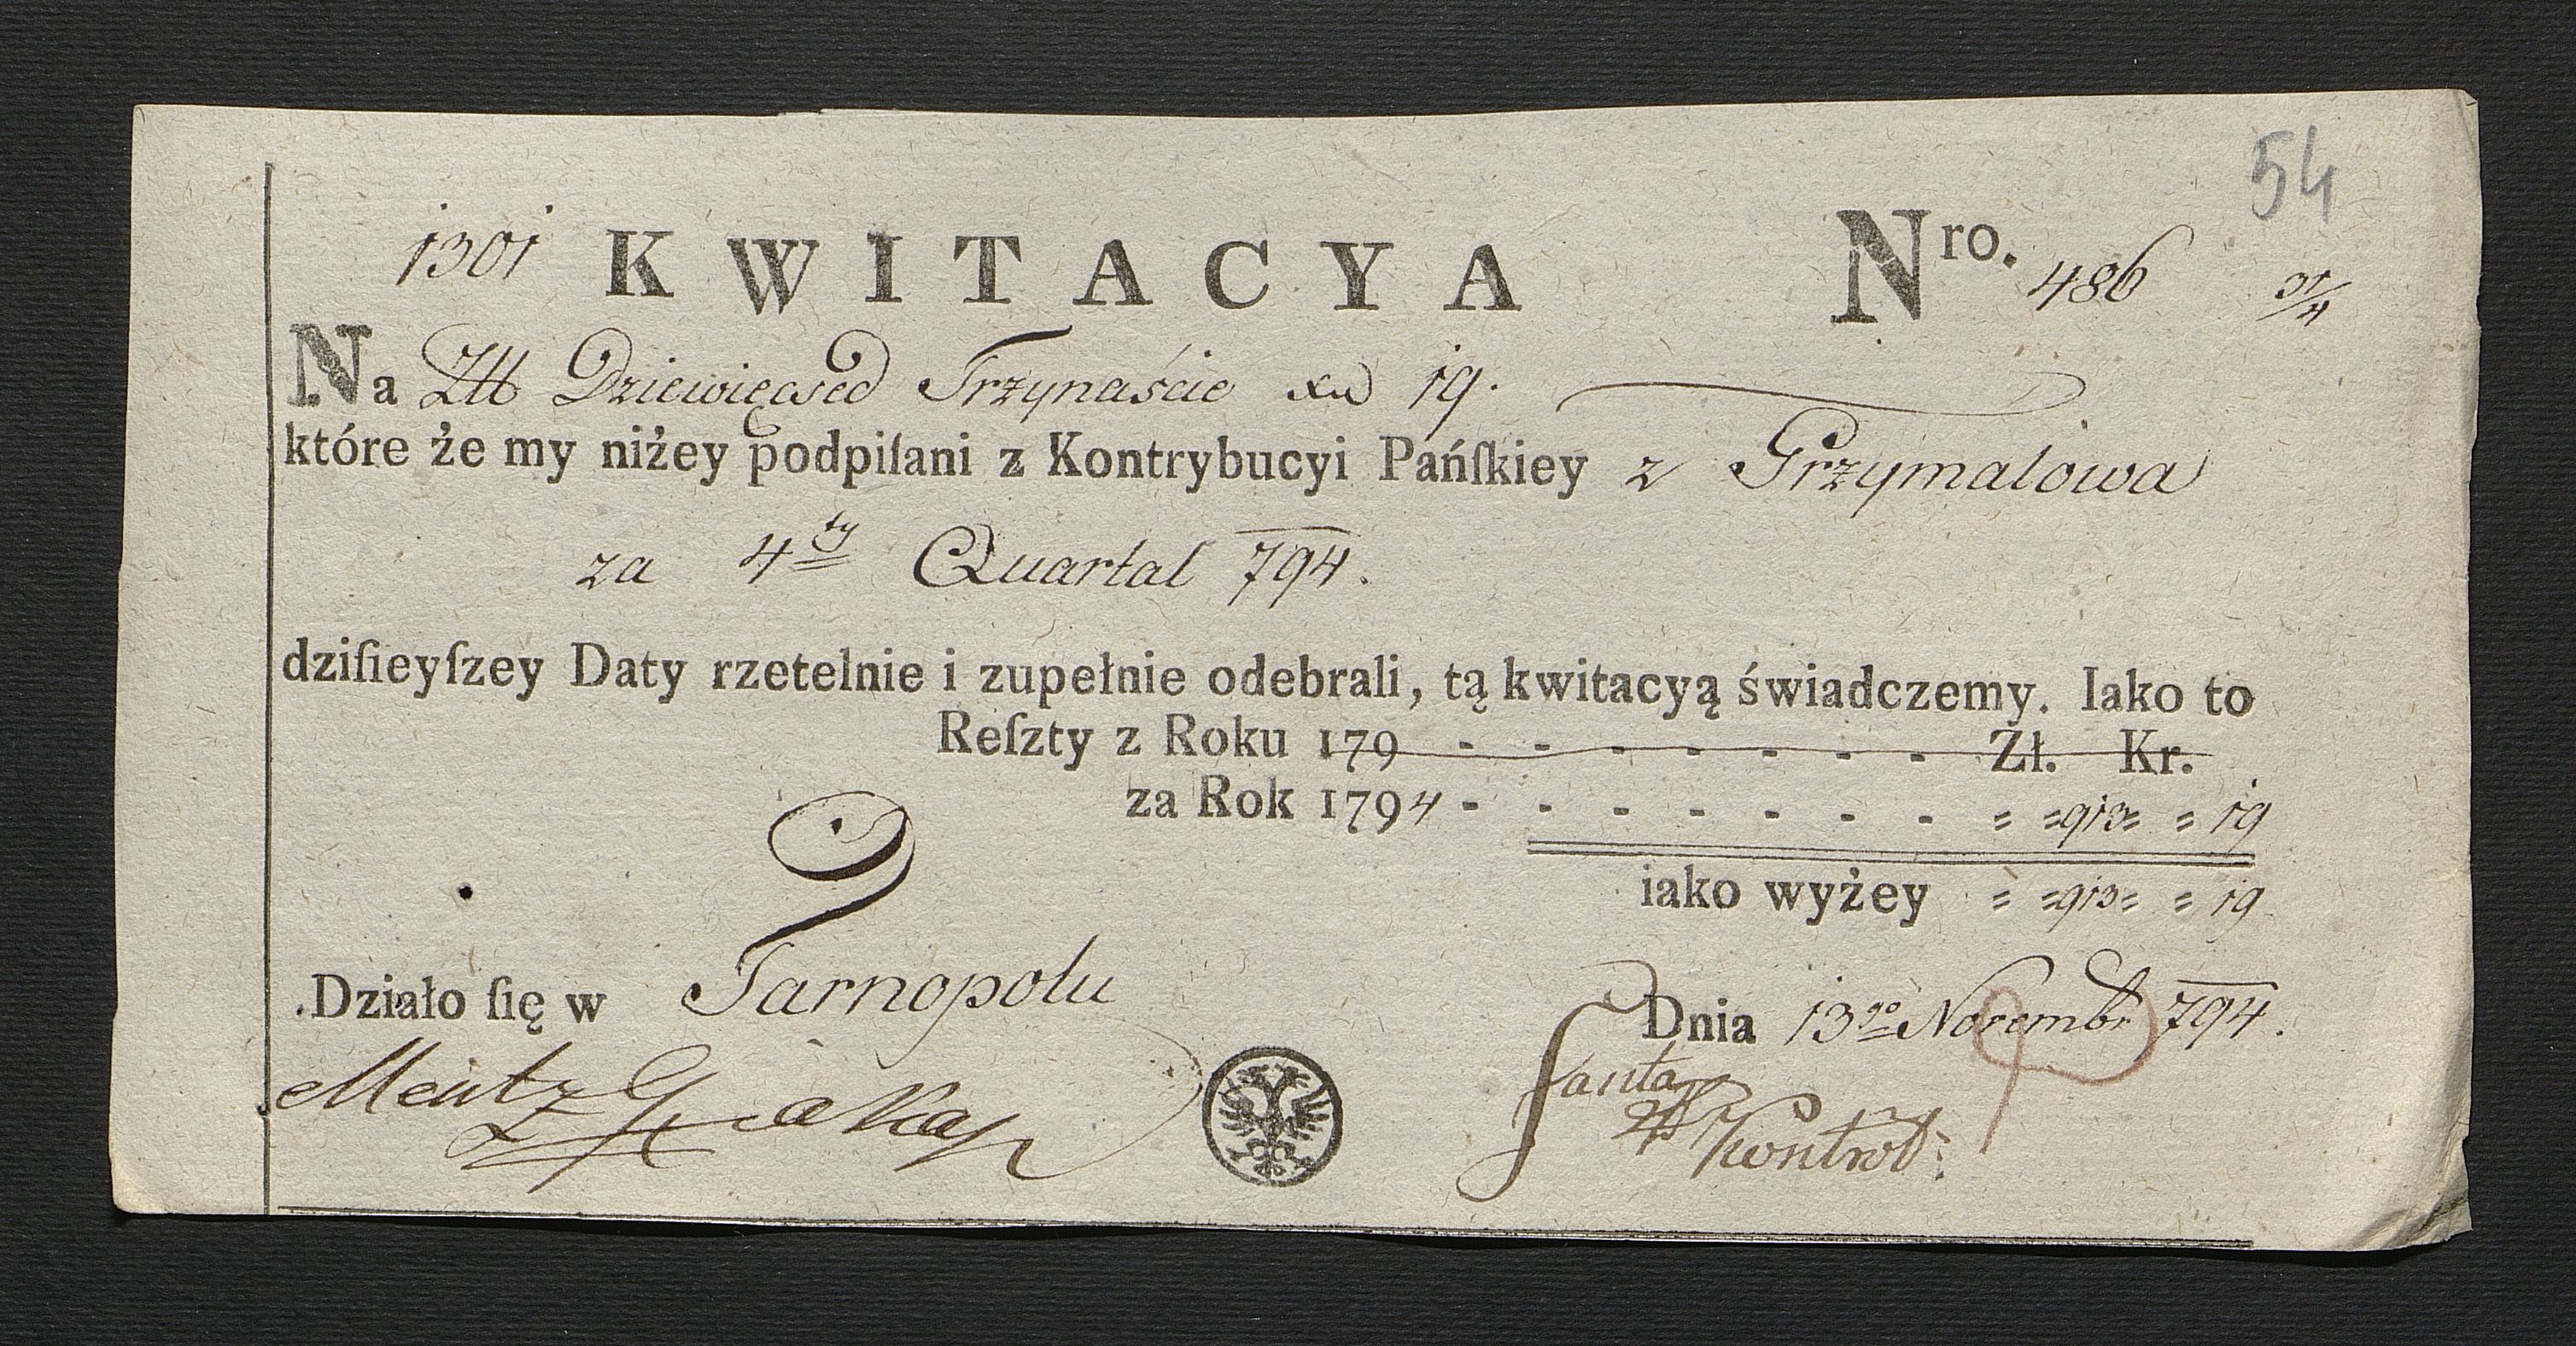 54
1301 KWITACYA Nro. 486
Na Złł Dziewięćset Trzynaście xn 19.
które że my niżey podpiſani z Kontrybucyi Pańſkiey z Grzymalowa
za 4ty Quartal 794.
dziſieyſzey Daty rzetelnie i zupełnie odebrali, tą kwitacyą świadczemy. Iako to
Reſzty z Roku 179 - - - - - - - Zł. Kr.
za Rok 1794 - - - - - - - = =913= = 19
iako wyżey = =913= = 19
Działo ſię w Tarnopolu
Dnia 13go Novembr 794.
Kontrol: